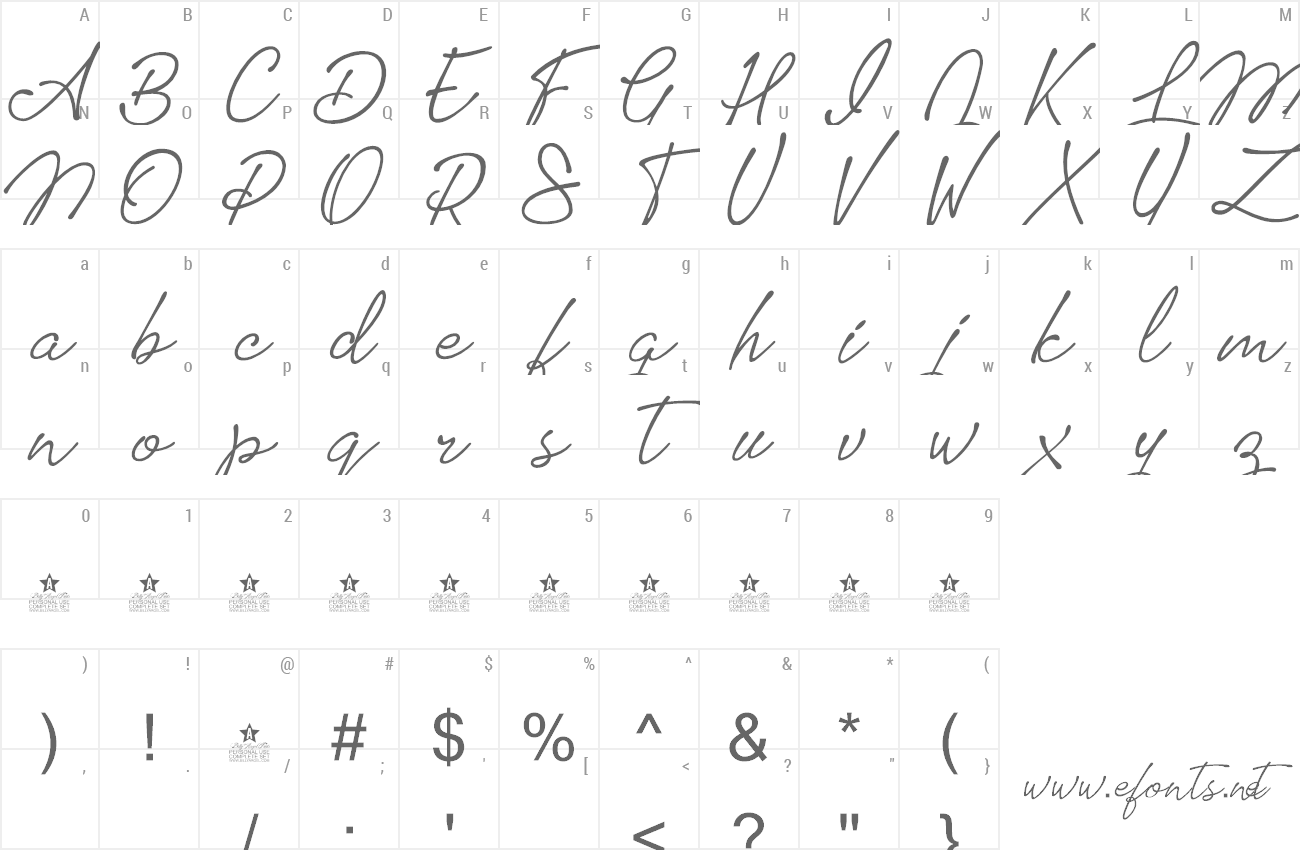 A B C D E F G H I J K L M
A B C D E F G H I J K L M
N O P Q R S T U V W X Y Z
N O P Q R S T U V W X Y Z
a b c d e f g h i j k l m
a b c d e f g h i j k l m
n o p q r s t u v w x y z
n o p q r s t u v w x y z
0 1 2 3 4 5 6 7 8 9
A A A A A A A A A A
PERSONAL USE PERSONAL USE PERSONAL USE PERSONAL USE PERSONAL USE PERSONAL USE PERSONAL USE PERSONAL USE PERSONAL USE PERSONAL USE
COMPLETE SET COMPLETE SET COMPLETE SET COMPLETE SET COMPLETE SET COMPLETE SET COMPLETE SET COMPLETE SET COMPLETE SET COMPLETE SET
) ! @ # $ % ^ & * (
) ! A # $ % ^ & * (
PERSONAL USE
COMPLETE SET
, . / ; ' [ < ? " }
/ ; ' < ? " }
www.efonts.net